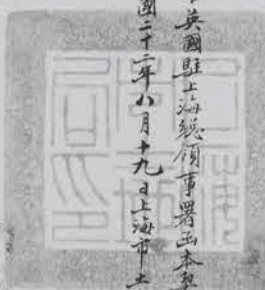 英國駐上海總領事署函本
國二十二年八月十九日上海市土